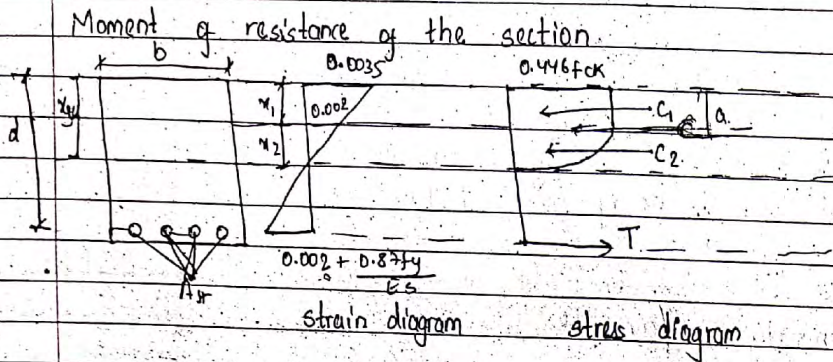 Moment of resistance of the section.
b
0.0035
0.446fck
d
xy
x1
0.002
x2
C1
a
C2
T
Ast
0.002 + 0.87fy
Es
strain diagram
stress diagram